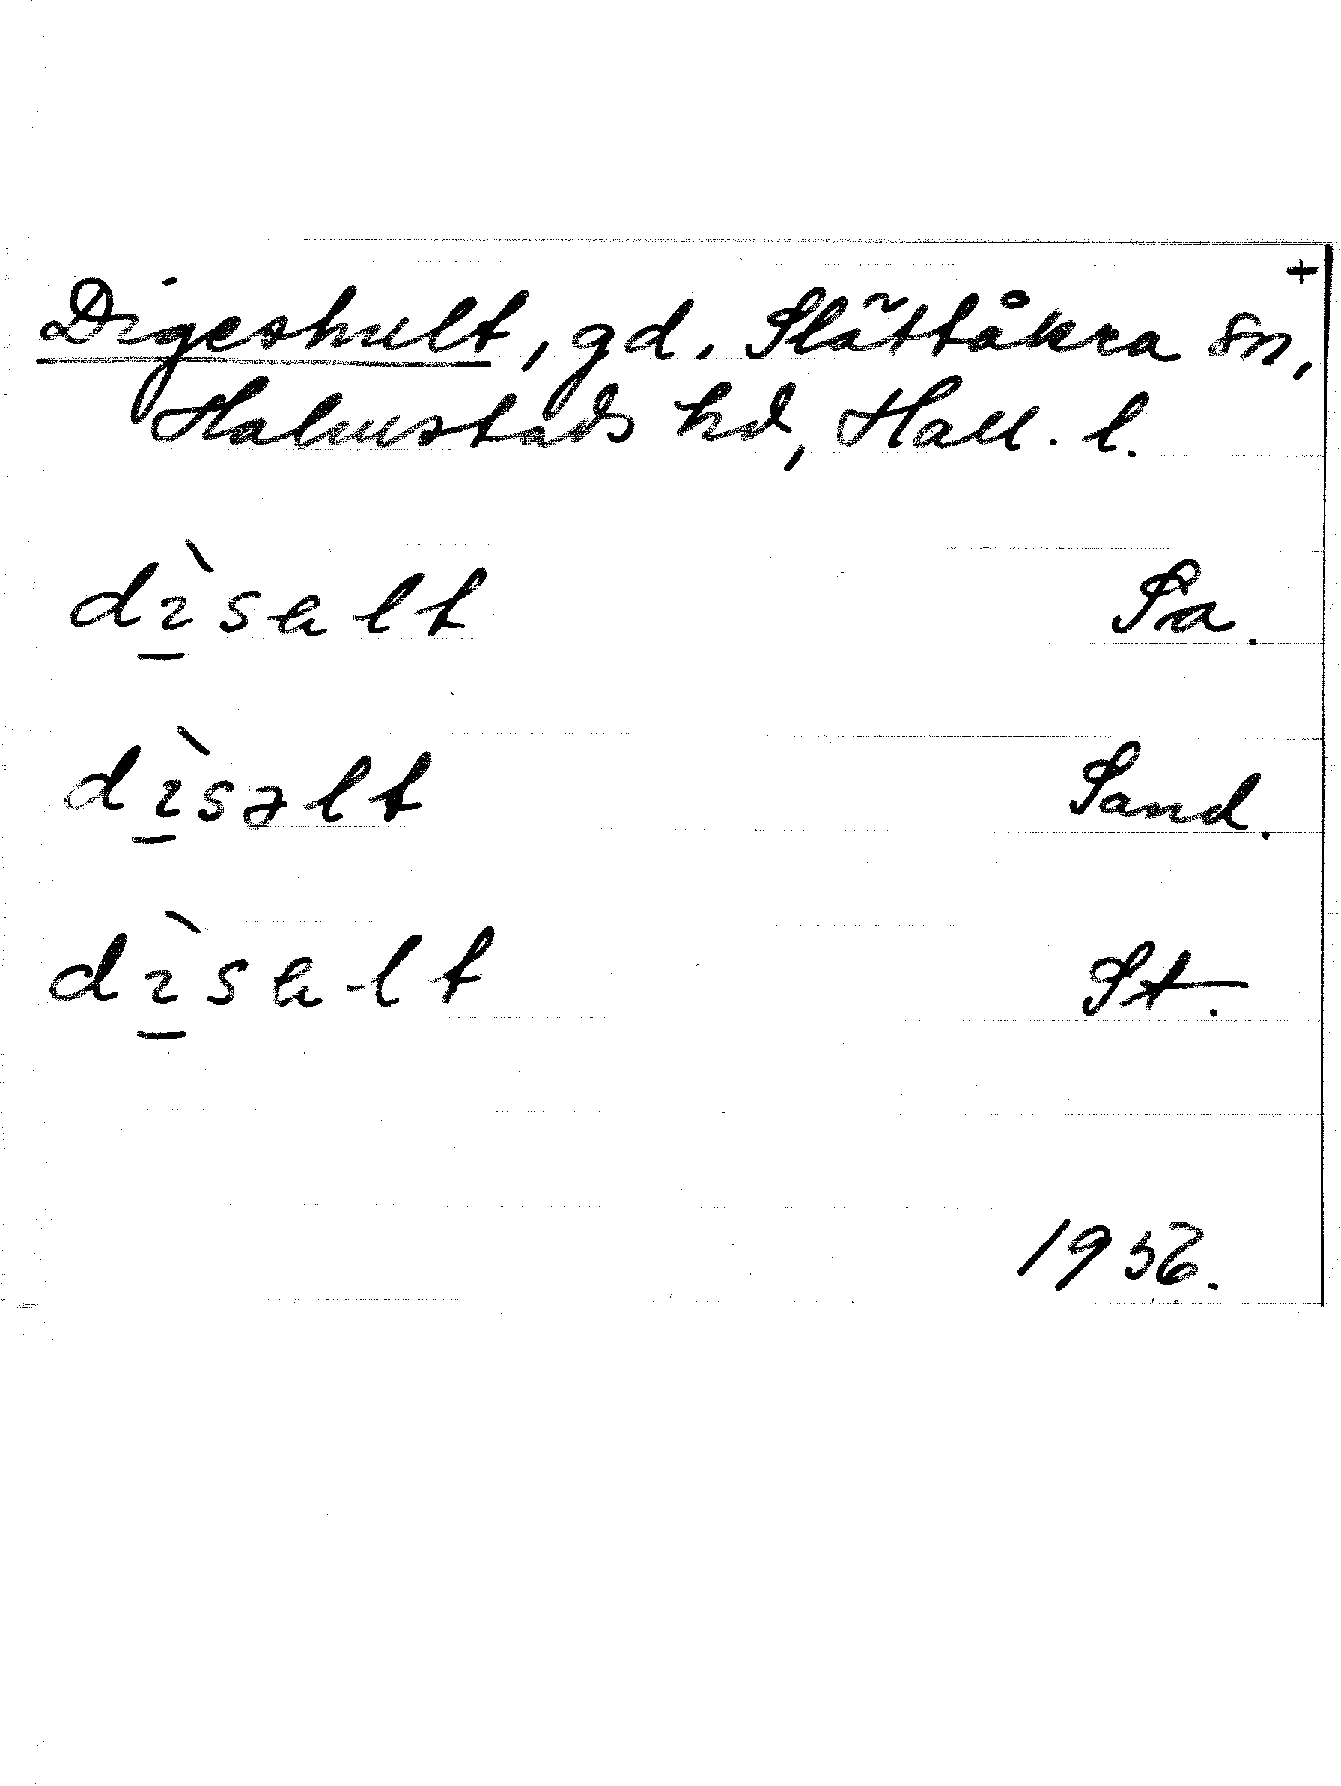 +
Digeshult, gd. Slättåkra sn,
Halmstads hd, Hall. l.
dı̱̀salt Sa.
dı̱̀səlt Sand.
dı̱̀salt St.
1956.